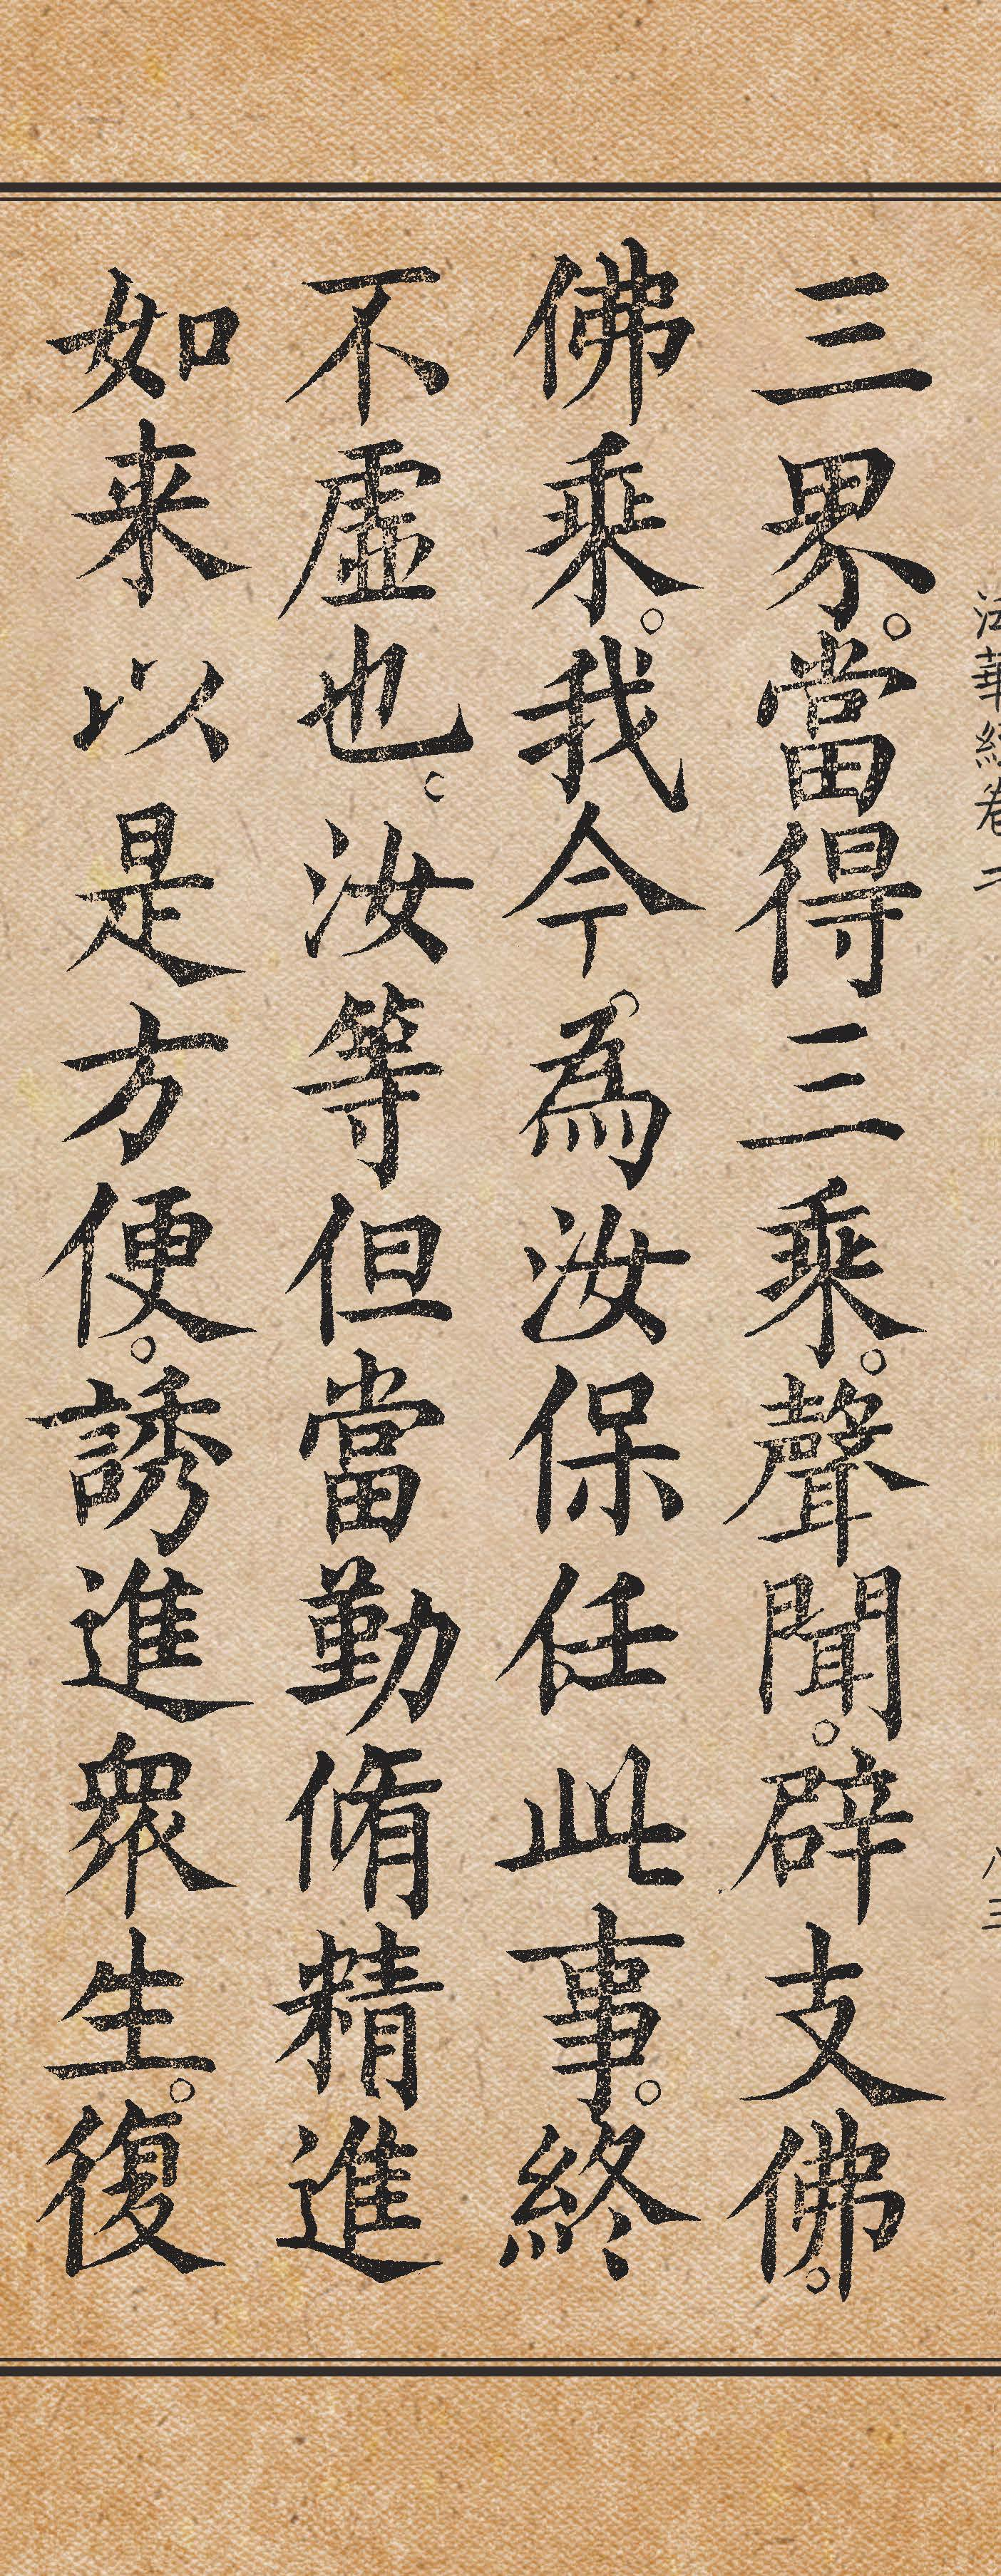 法華經卷二
八三
三界。當得三乘。聲聞。辟支佛。
佛乘。我今為汝保任此事。終
不虛也。汝等但當勤脩精進
如来以是方便。誘進衆生。復